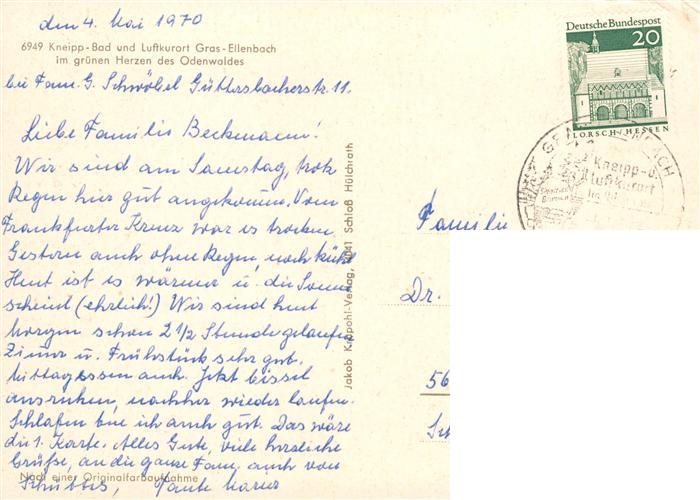 den 4. Mai 1970
6949 Kneipp-Bad und Luftkurort Gras-Ellenbach
im grünen Herzen des Odenwaldes
bei Fam. G. Schwöbel Güttersbacherstr. 11.
Liebe Familie Beckmann!
Wir sind am Samstag, trotz
Regen hier gut angekommen. Vom
Frankfurter Kreuz war es trocken.
Gestern auch ohne Regen, noch kühl
Heut ist es wärmer u. die Sonne
scheint (ehrlich!) Wir sind heut
morgen schon 2 1/2 Stunde gelaufen
Zimmr u. Frühstück sehr gut.
Mittagessen auch. Jetzt bissel
ausruhen, nachher wieder laufen.
Schlafen tue ich auch gut. Das wäre
die 1. Karte. Alles Gute, viele herzliche
Grüße, an die ganze Fam. auch von
Nach einer Originalfarbaufnahme
Tante
Jakob Krapohl-Verlag, 4041 Schloß Hülchrath
Deutsche Bundespost
20
LORSCH/HESSEN
Kneipp-u.
Luftkurort
Familie
Dr.
56